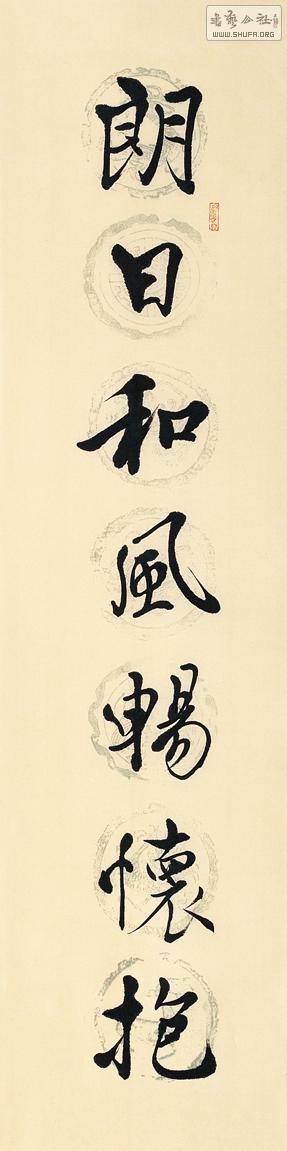 朗日和風暢懷抱
書藝公社
WWW.SHUFA.ORG